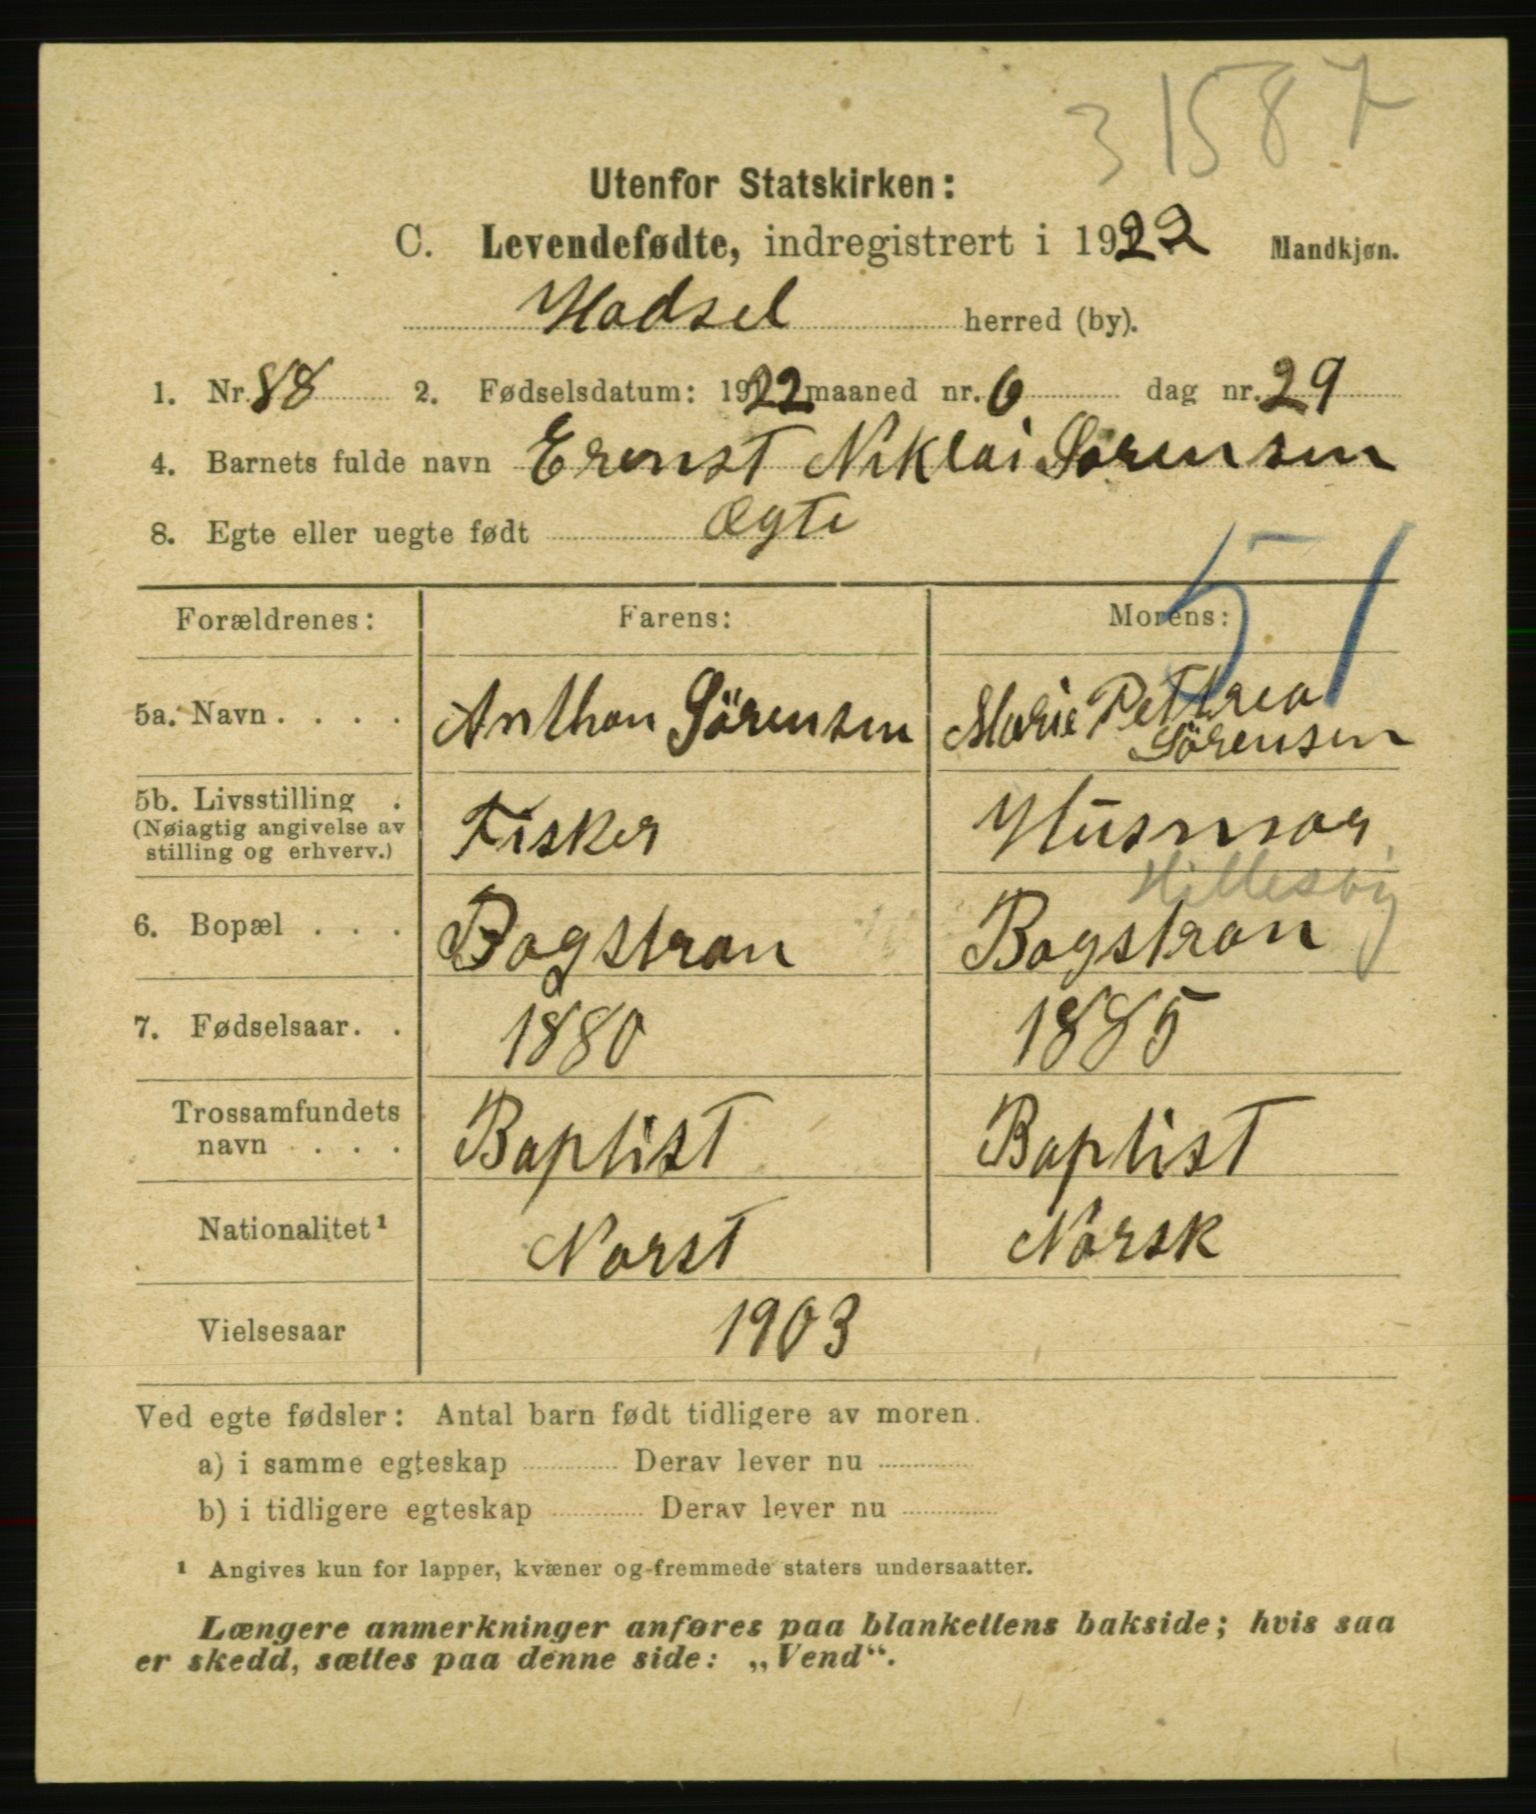 31587
Utenfor Statskirken:
C. Levendefødte, indregistrert i 1922 Mandkjøn.
Hadsel herred (by).
1. Nr. 88 2. Fødselsdatum: 1922 maaned nr. 6 dag nr. 29
4. Barnets fulde navn Ernst Niklai Sørensen
8. Egte eller uegte født Ægte
51
Forældrenes: Farens: Morens:
5a. Navn . . . . Anthon Sörensen Marie Pettrea Sörensen
5b. Livsstilling . Fisker Husmor
(Nøiagtig angivelse av
stilling og erhverv.)
Hillesøy
6. Bopæl . . . Bogstran Bogstran
7. Fødselsaar. . 1880 1885
Trossamfundets
navn . . . . Baptist Baptist
Nationalitet¹ Norst Norsk
Vielsesaar 1903
Ved egte fødsler: Antal barn født tidligere av moren.
a) i samme egteskap ........... Derav lever nu ...........
b) i tidligere egteskap ........... Derav lever nu ...........
¹ Angives kun for lapper, kvæner og fremmede staters undersaatter.
Længere anmerkninger anføres paa blankettens bakside; hvis saa
er skedd, sættes paa denne side: „Vend“.